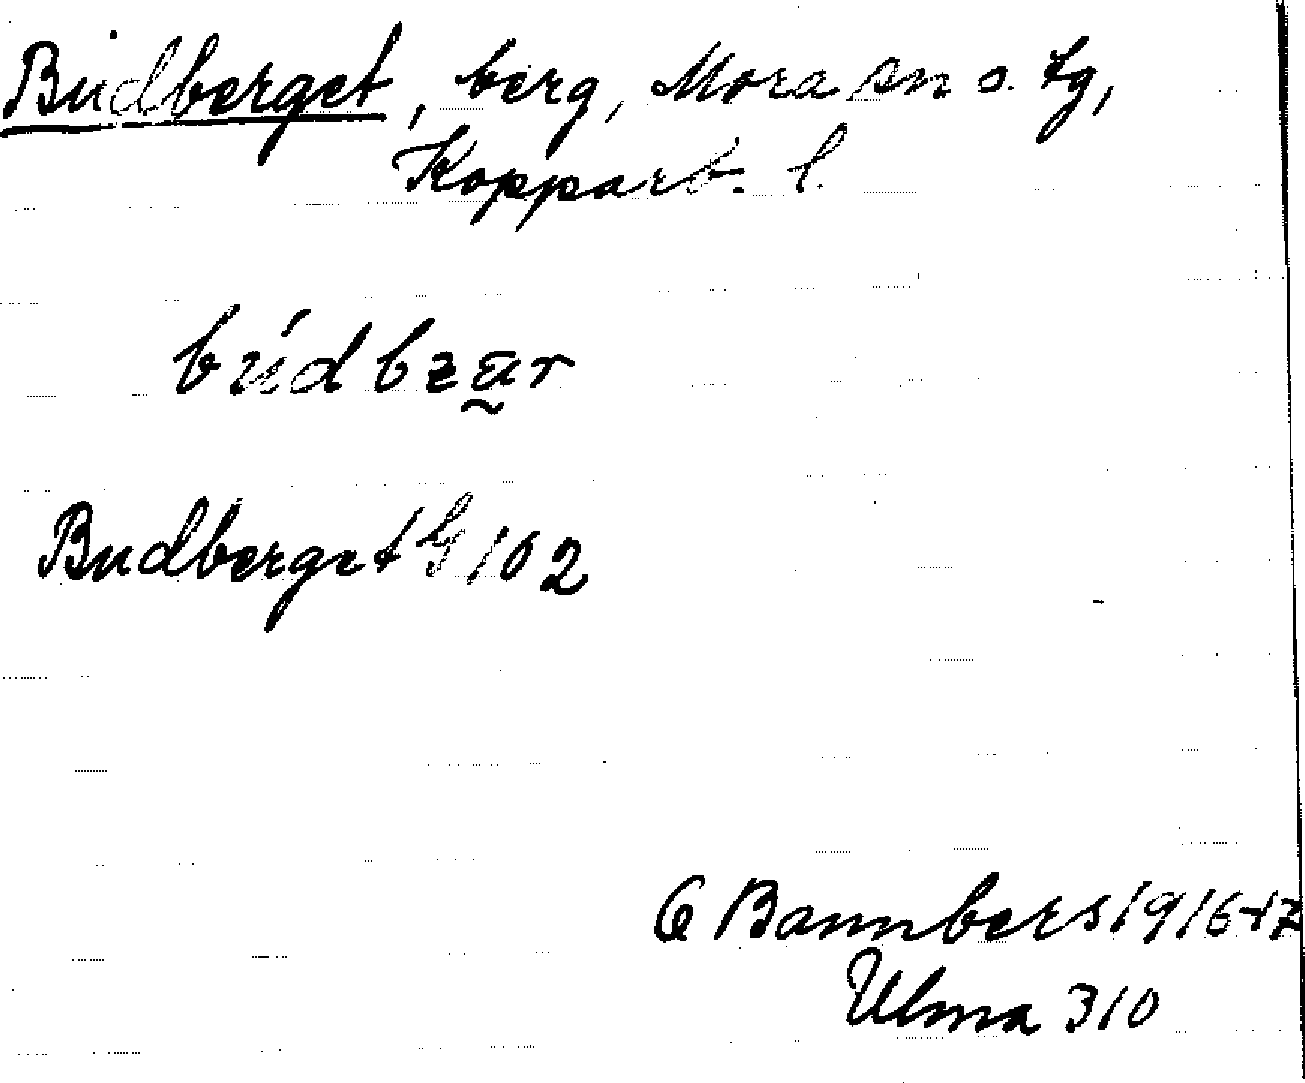 Budberget, berg, Mora sn o. tg,
Kopparb. l.
Budberget G 102
O Bannbers 1916-17
Ulma 310